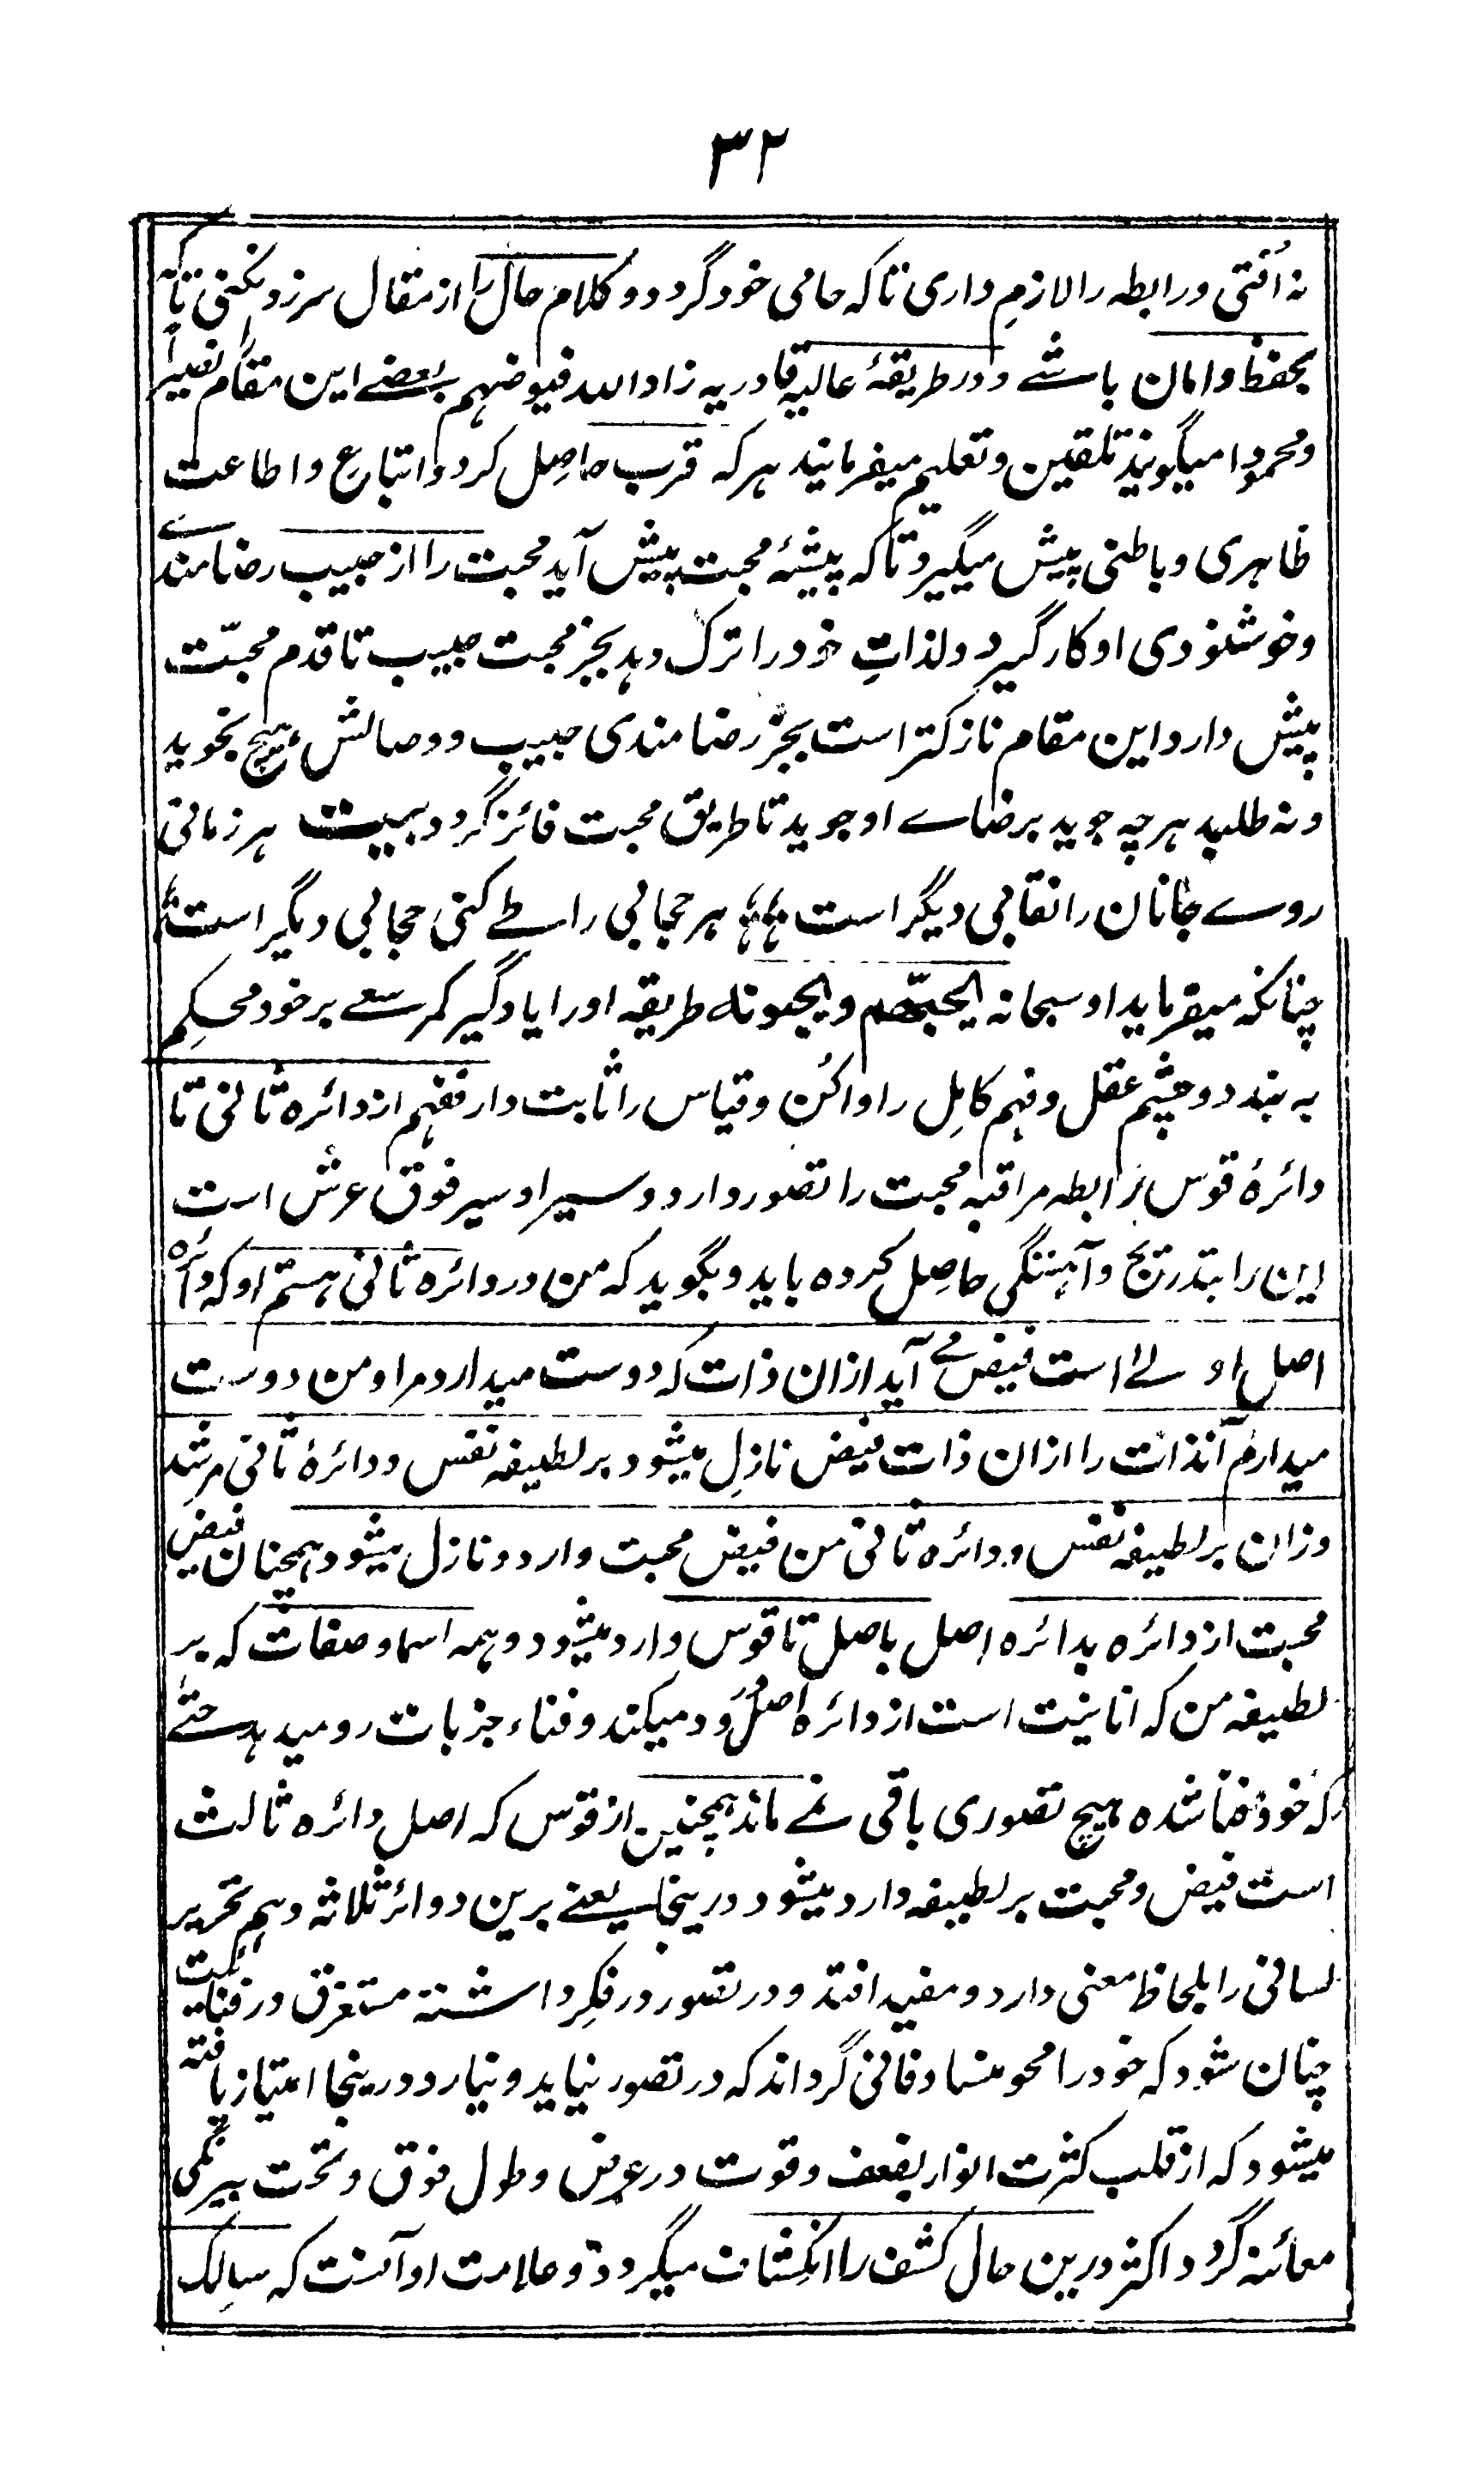 ۳۲
نہ اُفتی و رابطہ را لازمِ داری تا کہ حامی خود گردد و کلام حال را از مقال سرزد نکنی تا کہ
بحفظ و امان باشے و در طریقۂ عالیہ قادریہ زاد اللہ فیوضہم بعضے این مقام نصیراً
و محمودا میگویند تلقین و تعلیم میفرمایند ہر کہ قرب حاصِل کرد و اتباع و اطاعت
ظاہری و باطنی پیش میگیرد تا کہ پیشۂ محبت پیش آید محبت را از حبیب رضامندے
و خوشنودی او کار گیرد و لذاتِ خود را ترک دہد بجز محبت حبیب تا قدم محبّت
پیش دارد این مقام نازکتر است بجز رضامندی حبیب و وصالش ہیچ نجوید
و نہ طلبد ہرچہ جوید برضاے او جوید تا طریق محبت فائز گردد بیت ہر زمانی
روے جانان را نقابی دیگر است ؛؛ ہر حجابی را طے کنی حجابی دیگر است
چنانکہ میفرماید او سبحانہ یحبّہم و یحبونہ طریقہ او را یاد گیر کمر سعے بر خود محکِم
بہ بند و چشم عقل و فہم کامِل را واکُن و قیاس را ثابت دار فہم از دائرہ ثانی تا
دائرۂ قوس برابطہ مراقبہ محبت را تصور دارد و سیر او سیر فوق عرش است
این را بتدریج و آہستگی حاصِل کردہ باید و بگوید کہ من در دائرہ ثانی ہستم او کہ دائرہ
اصل اولےٰ است فیض مے آید از ان ذات کہ دوست میدارد مرا و من دوست
میدارم آنذات را از ان ذات فیض نازِل میشود بر لطیفہ نفس و دائرۂ ثانی مرشد
وزان بر لطیفہ نفس و دائرہ ثانی من فیض محبت وارد و نازل میشود ہمچنان فیض
محبت از دائرہ بدائرہ اصل باصل تا قوس وارد میشود و ہمہ اسما و صفات کہ بر
لطیفہ من کہ انانیت است از دائرہ اصل ورود میکند و فناء جزبات رو میدہد حتےٰ
کہ خود فنا شدہ ہیچ تصوری باقی نمے ماند ہمچنین از قوس کہ اصل دائرہ ثالث
است فیض و محبت بر لطیفہ وارد میشود درینجا یعنے برین دوائر ثلاثہ و ہم تحریر
لسانی را بلحاظ معنی دارد و مفید افتد و در تصور در فکِر داشتہ مستغرق در فنائیت
چنان شود کہ خود را محو منسا و فانی گرداند کہ در تصور نیاید و نیارد درینجا امتیاز یافتہ
میشود کہ از قلب کثرت انوار بضعف و قوت در عرض و طول فوق و تحت بیرنگی
معائنہ گردد اکثر درین حال کشف را انکِشاف میگردد و علامت او آنست کہ سالِک